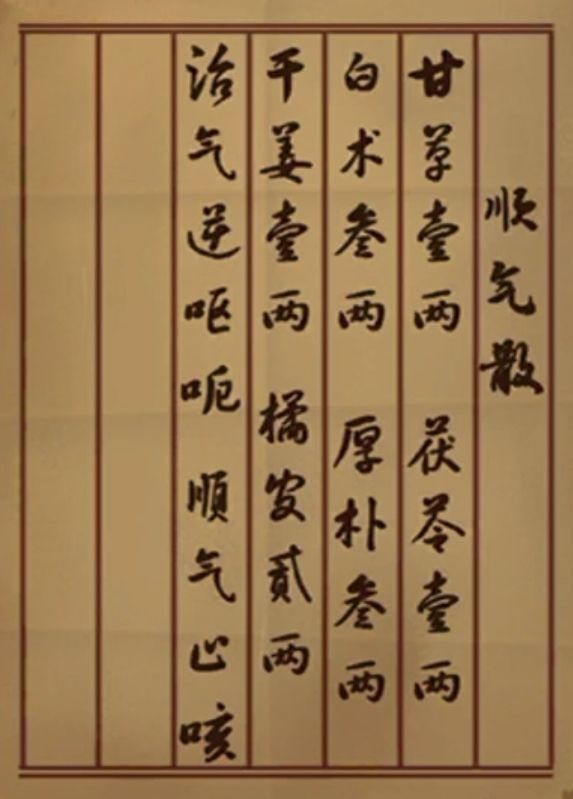 顺气散
甘草壹两 茯苓壹两
白术叁两 厚朴叁两
干姜壹两 橘皮贰两
治气逆呕呃 順气止咳